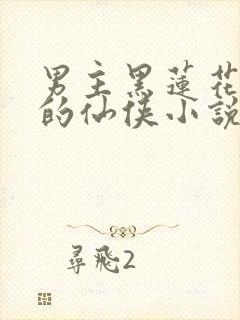 男主黑蓮花
的仙俠小說
尋飛2